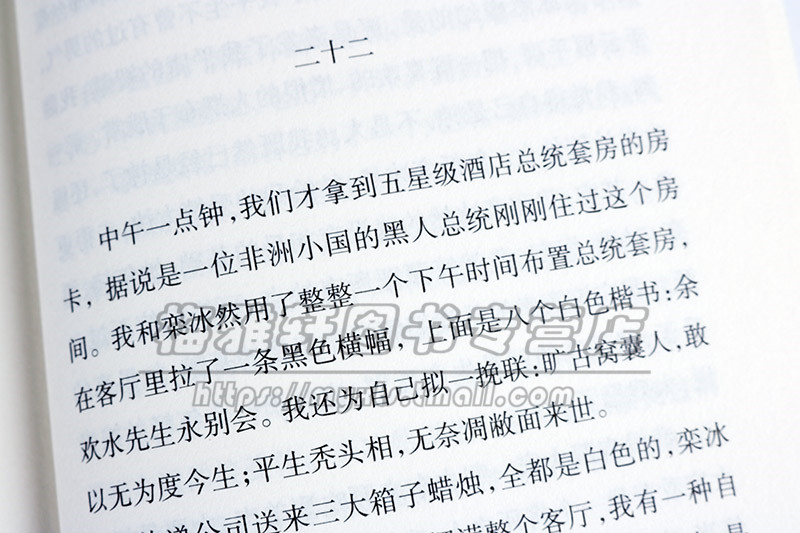 二十二
中午一点钟，我们才拿到五星级酒店总统套房的房
卡，据说是一位非洲小国的黑人总统刚刚住过这个房
间。我和栾冰然用了整整一个下午时间布置总统套房，
在客厅里拉了一条黑色横幅，上面是八个白色楷书：余
欢水先生永别会。我还为自己拟一挽联：旷古窝囊人，敢
以无为度今生；平生秃头相，无奈凋敝面来世。
递公司送来三大箱子蜡烛，全都是白色的，栾冰
满整个客厅，我有一种自
图书专营店